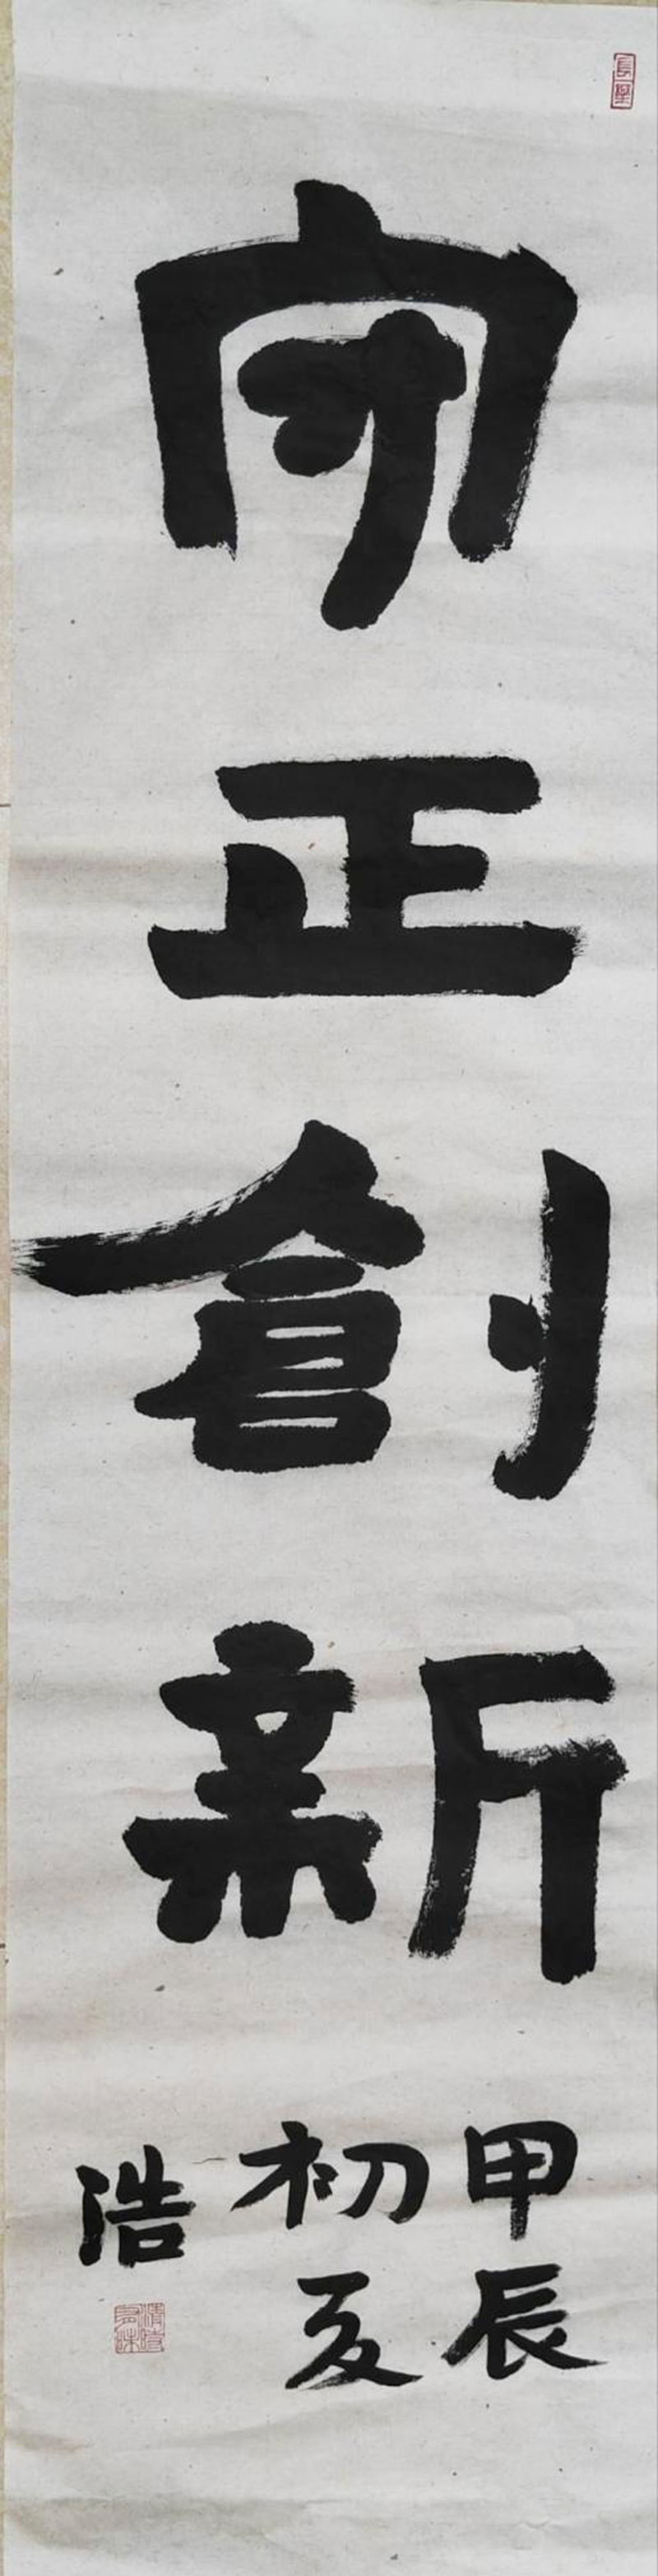 守正創新
甲辰
初夏
浩